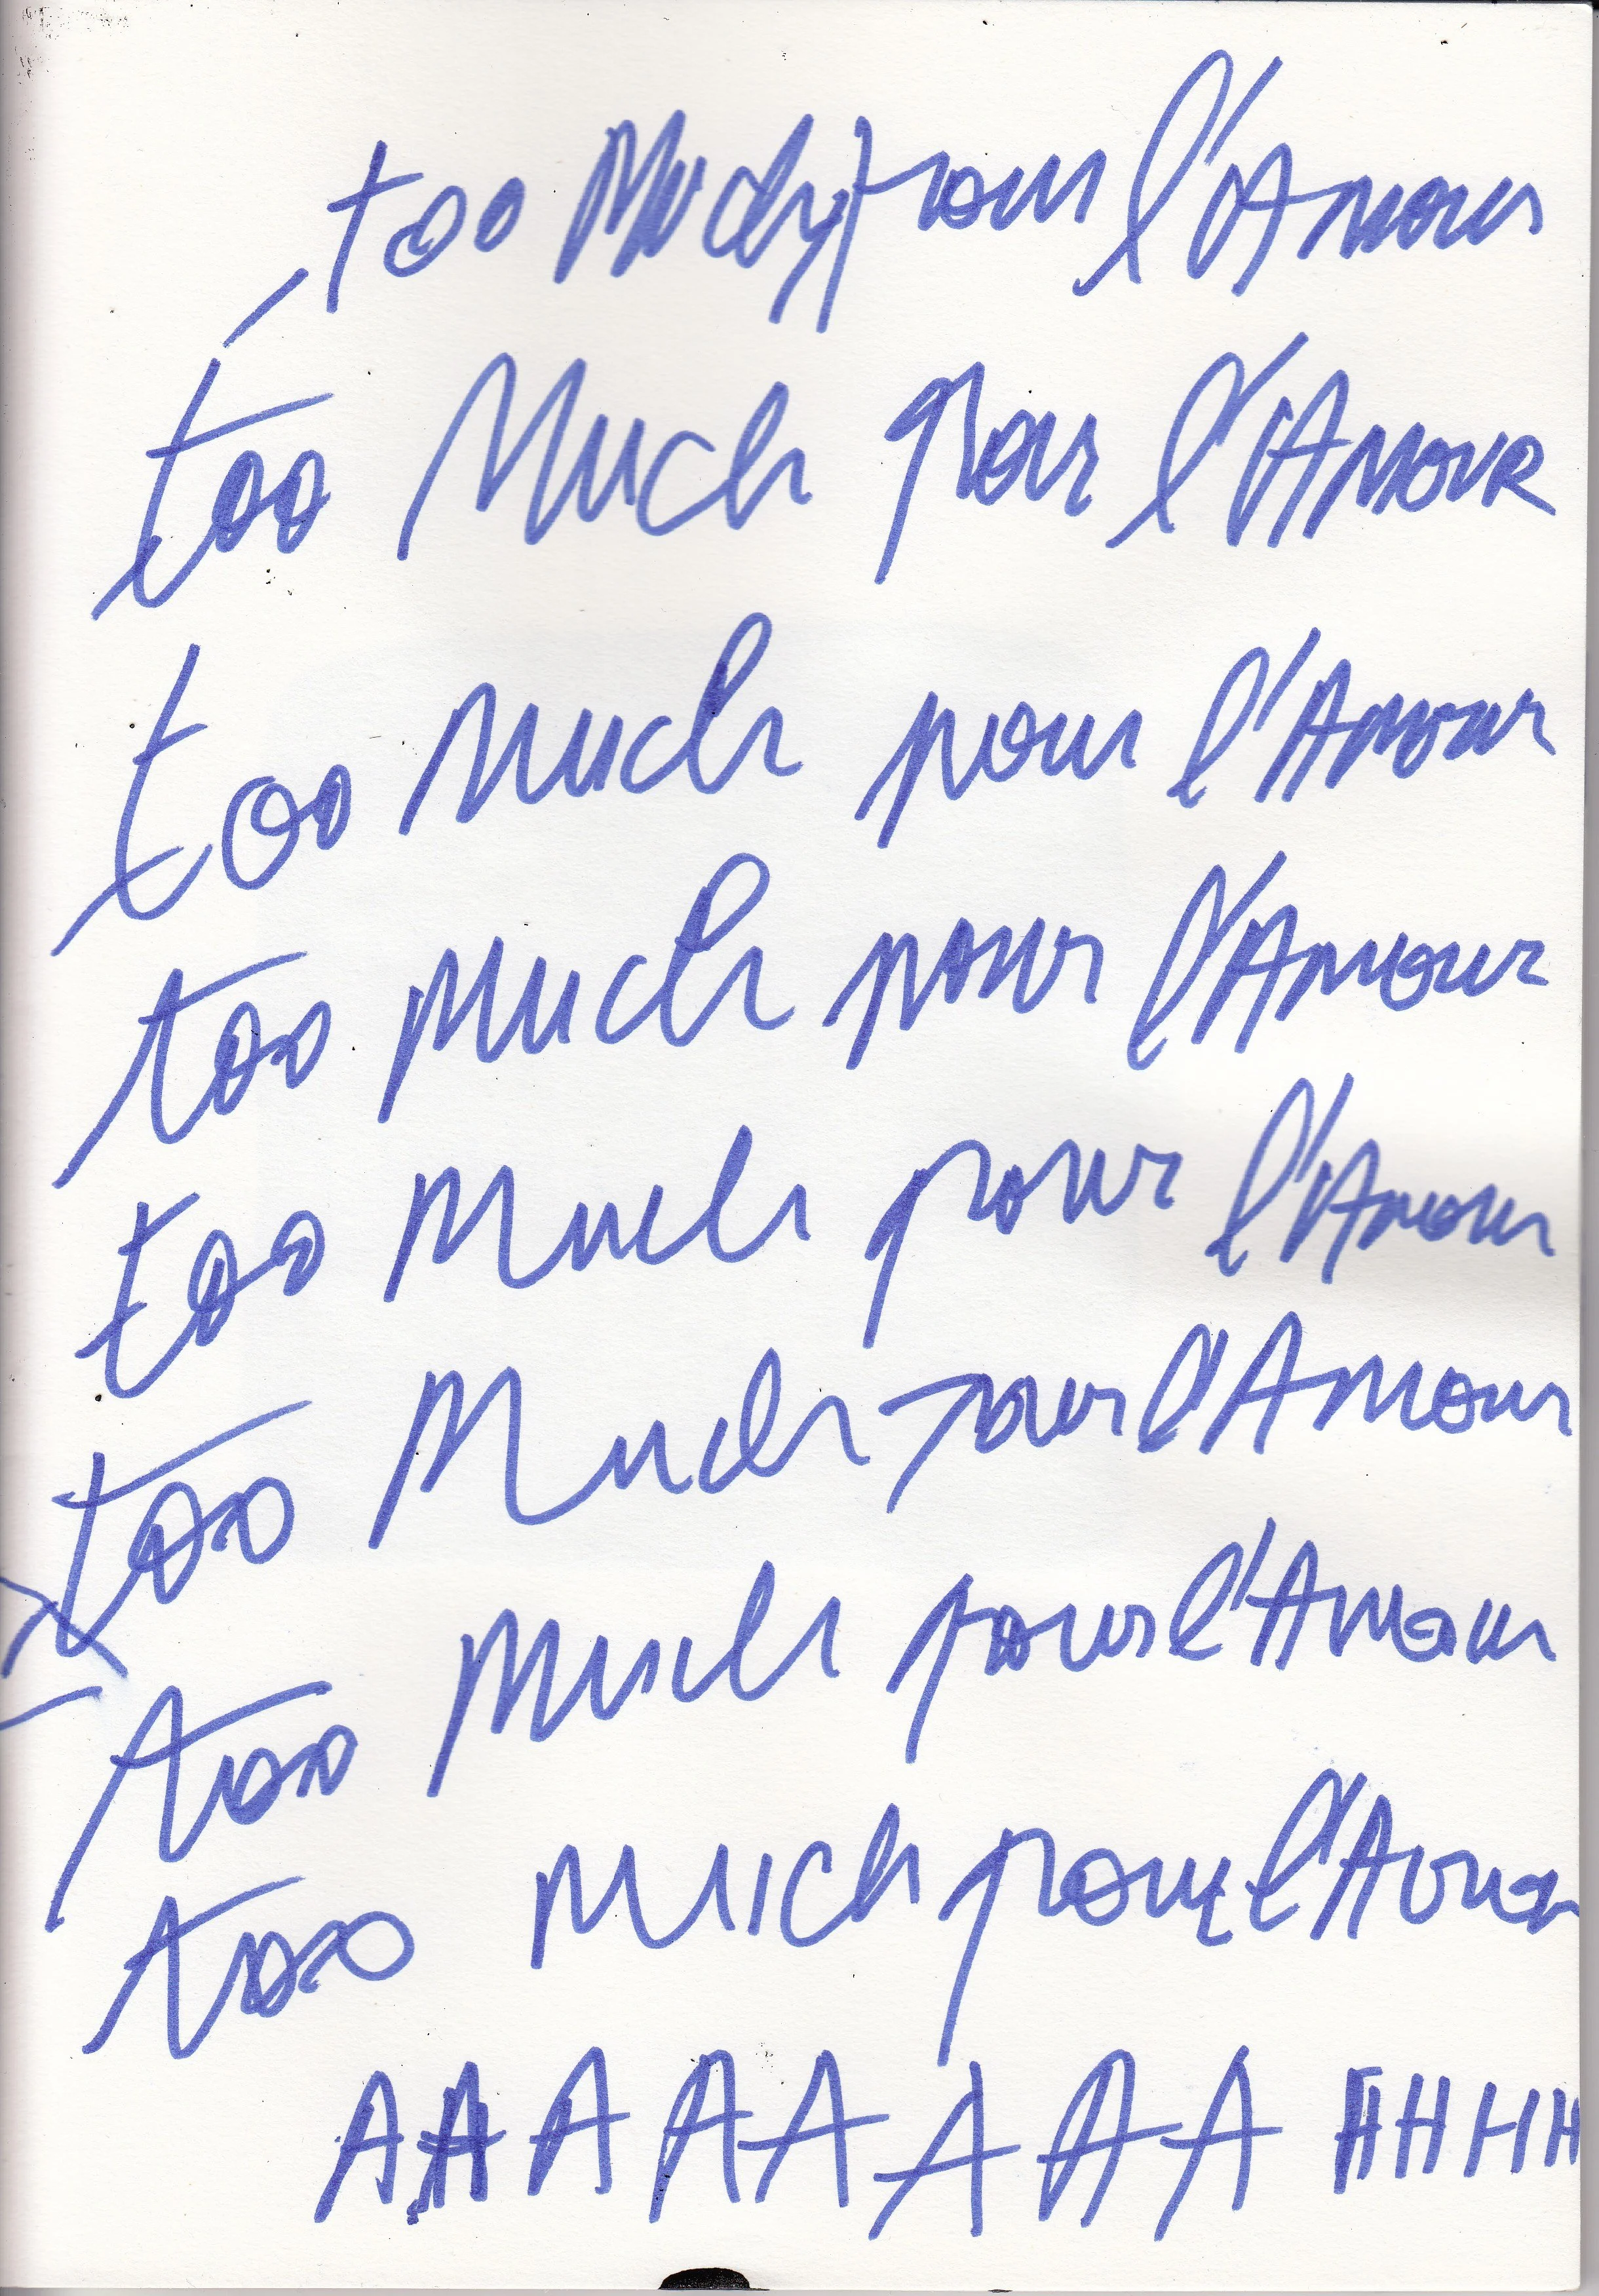 too Much pour l'Amour
too Much pour l'AMOUR
too Much pour l'Amour
too Much pour l'Amour
too Much pour l'Amour
too Much pour l'Amour
too Much pour l'Amour
too Much pour l'Amour
AAAAAAAA HHHH